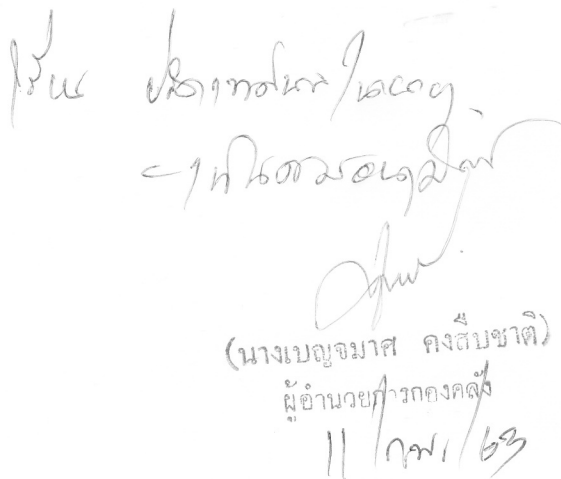 เรียน ปลัดเทศบาล
- เห็นควรอนุมัติ
(นางเบญจมาศ คงสืบชาติ)
ผู้อำนวยการกองคลัง
11 / กพ. / 63